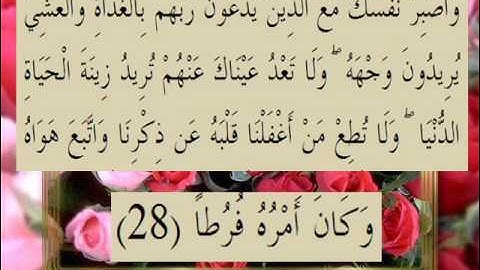 وَاصْبِرْ نَفْسَكَ مَعَ الَّذِينَ يَدْعُونَ رَبَّهُم بِالْغَدَاةِ وَالْعَشِيِّ
يُرِيدُونَ وَجْهَهُ ۖ وَلَا تَعْدُ عَيْنَاكَ عَنْهُمْ تُرِيدُ زِينَةَ الْحَيَاةِ
الدُّنْيَا ۖ وَلَا تُطِعْ مَنْ أَغْفَلْنَا قَلْبَهُ عَن ذِكْرِنَا وَاتَّبَعَ هَوَاهُ
وَكَانَ أَمْرُهُ فُرُطاً (28)